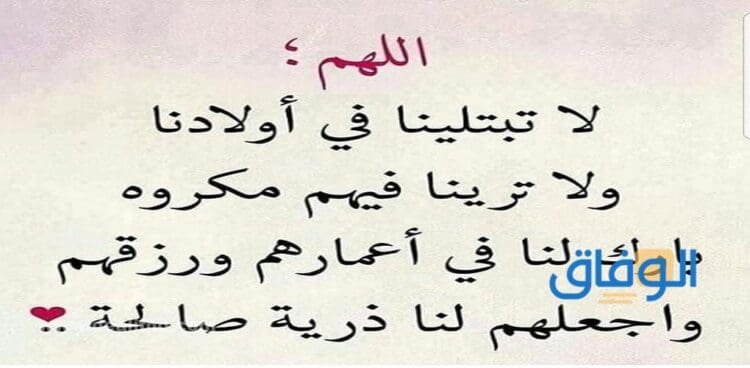 اللهم ؛
لا تبتلينا في أولادنا
ولا ترينا فيهم مكروه
بارك لنا في أعمارهم ورزقهم
الوفاق
واجعلهم لنا ذرية صالحة ..